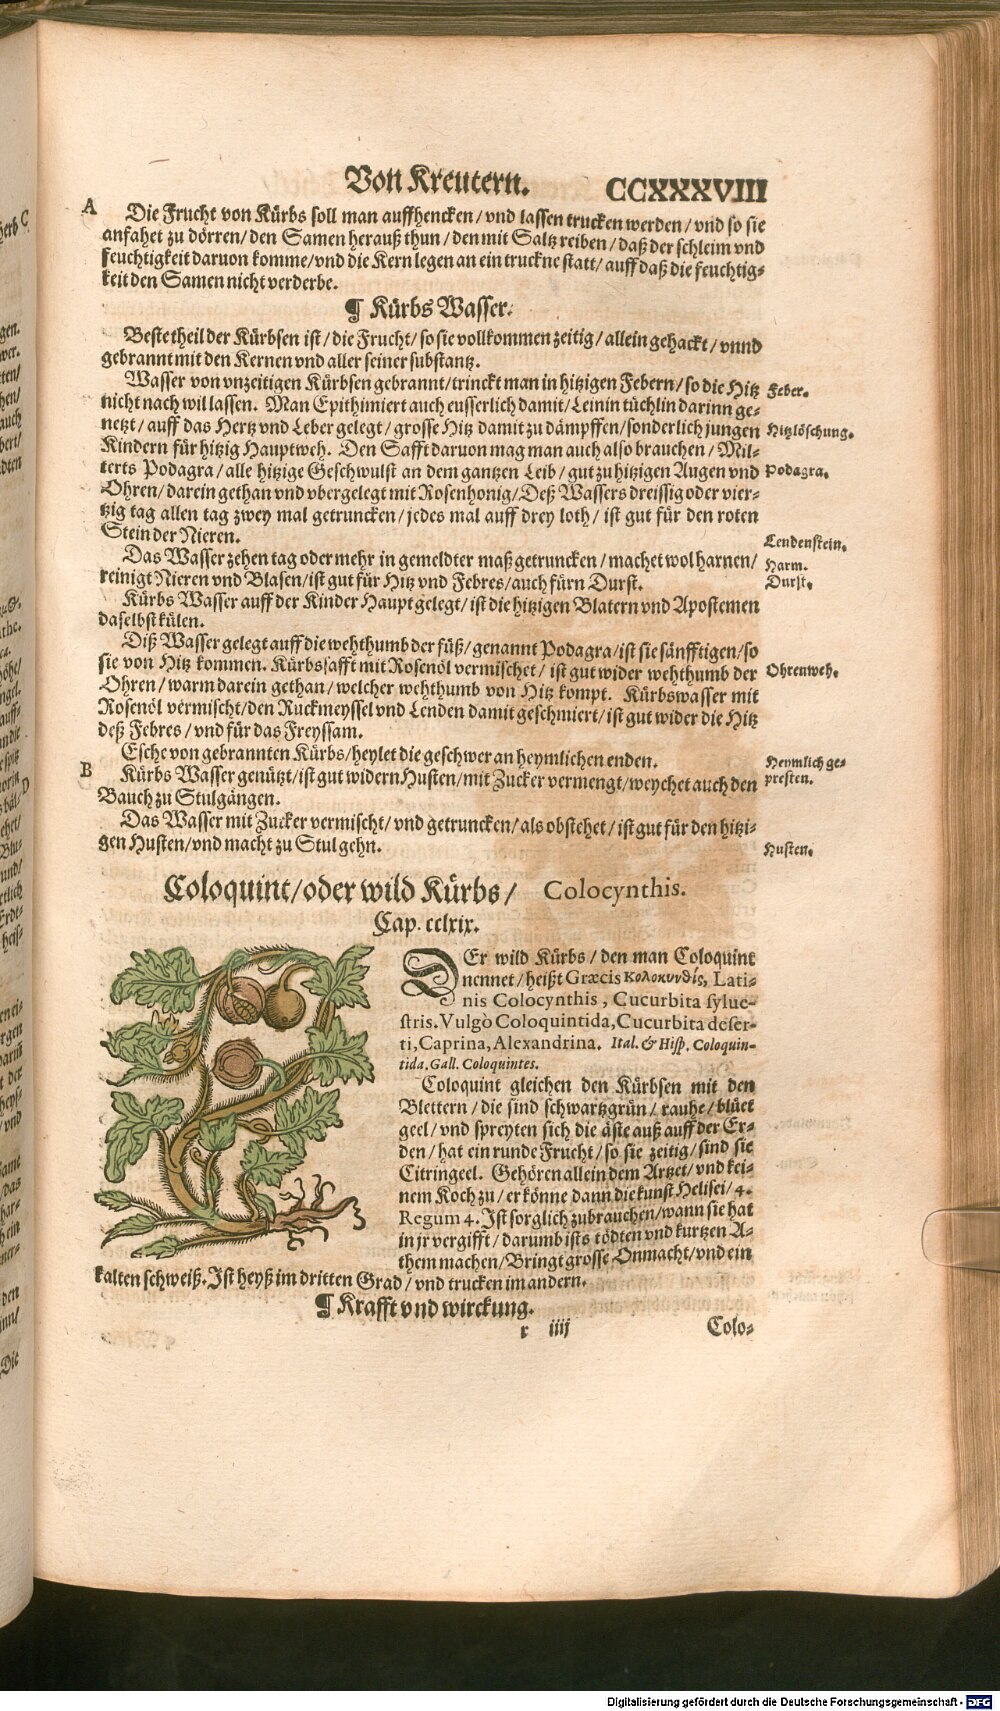 Von Kreutern.
CCXXXVIII
A
Die Frucht von Kürbs soll man auffhencken/vnd lassen trucken werden/vnd so sie
anfahet zu dörren/den Samen herauß thun/den mit Saltz reiben/daß der schleim vnd
feuchtigkeit daruon komme/vnd die Kern legen an ein truckne statt/auff daß die feuchtig=
keit den Samen nicht verderbe.
¶ Kürbs Wasser.
Beste theil der Kürbsen ist/die Frucht/so sie vollkommen zeitig/allein gehackt/vnnd
gebrannt mit den Kernen vnd aller seiner substantz.
Wasser von vnzeitigen Kürbsen gebrannt/trinckt man in hitzigen Febern/so die Hitz
Feber.
nicht nach wil lassen. Man Epithimiert auch eusserlich damit/Leinin tüchlin darinn ge=
netzt/auff das Hertz vnd Leber gelegt/grosse Hitz damit zu dämpffen/sonderlich jungen
Hitzlöschung.
Kindern für hitzig Hauptweh. Den Safft daruon mag man auch also brauchen/Mil=
terts Podagra/alle hitzige Geschwulst an dem gantzen Leib/gut zu hitzigen Augen vnd
Podagra.
Ohren/darein gethan vnd vbergelegt mit Rosenhonig/Deß Wassers dreissig oder vier=
tzig tag allen tag zwey mal getruncken/jedes mal auff drey loth/ist gut für den roten
Stein der Nieren.
Lendenstein.
Das Wasser zehen tag oder mehr in gemeldter maß getruncken/machet wol harnen/
Harm.
reinigt Nieren vnd Blasen/ist gut für Hitz vnd Febres/auch fürn Durst.
Durst.
Kürbs Wasser auff der Kinder Haupt gelegt/ist die hitzigen Blatern vnd Apostemen
daselbst külen.
Diß Wasser gelegt auff die wehthumb der füß/genannt Podagra/ist sie sänfftigen/so
sie von Hitz kommen. Kürbssafft mit Rosenöl vermischet/ist gut wider wehthumb der
Ohrenweh.
Ohren/warm darein gethan/welcher wehthumb von Hitz kompt. Kürbswasser mit
Rosenöl vermischt/den Ruckmeyssel vnd Lenden damit geschmiert/ist gut wider die Hitz
deß Febres/vnd für das Freyssam.
Esche von gebrannten Kürbs/heylet die geschwer an heymlichen enden.
Heymlich ge=
presten.
B
Kürbs Wasser genützt/ist gut widern Husten/mit Zucker vermengt/weychet auch den
Bauch zu Stulgängen.
Das Wasser mit Zucker vermischt/vnd getruncken/als obstehet/ist gut für den hitzi=
gen Husten/vnd macht zu Stul gehn.
Husten.
Coloquint/oder wild Kürbs/ Colocynthis.
Cap. cclxix.
DEr wild Kürbs/den man Coloquint
nennet/heißt Græcis Κολοκυνθὶς, Lati-
nis Colocynthis, Cucurbita sylue-
stris. Vulgò Coloquintida, Cucurbita deser-
ti, Caprina, Alexandrina. Ital. & Hisp. Coloquin-
tida. Gall. Coloquintes.
Coloquint gleichen den Kürbsen mit den
Blettern/die sind schwartzgrün/rauhe/blüet
geel/vnd spreyten sich die äste auß auff der Er=
den/hat ein runde Frucht/so sie zeitig/sind sie
Citringeel. Gehören allein dem Artzet/vnd kei=
nem Koch zu/er könne dann die kunst Helisei/4.
Regum 4. Ist sorglich zubrauchen/wann sie hat
in jr vergifft/darumb ists tödten vnd kurtzen A=
them machen/Bringt grosse Onmacht/vnd ein
kalten schweiß. Ist heyß im dritten Grad/vnd trucken im andern.
¶ Krafft vnd wirckung.
r iiij
Colo=
Digitalisierung gefördert durch die Deutsche Forschungsgemeinschaft - DFG